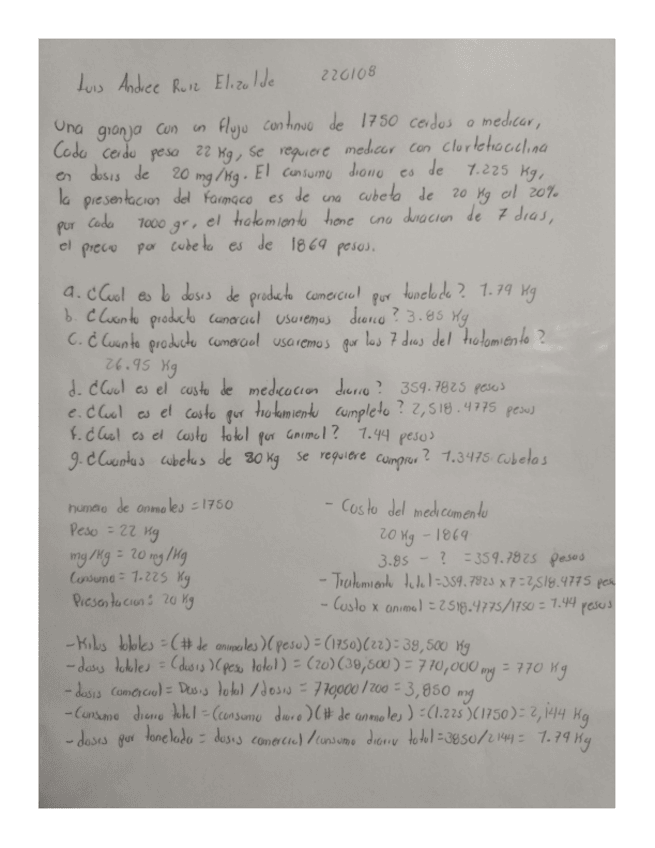 Luis Andree Ruiz Elizalde 220108
Una granja con un flujo continuo de 1750 cerdos a medicar,
Cada cerdo pesa 22 Kg, se requiere medicar con clortetraciclina
en dosis de 20 mg/Kg. El consumo diario es de 1.225 Kg,
la presentacion del farmaco es de una cubeta de 20 Kg al 20%
por cada 1000 gr, el tratamiento tiene una duracion de 7 dias,
el precio por cubeta es de 1869 pesos.
a. ¿Cual es la dosis de producto comercial por tonelada? 1.79 Kg
b. ¿Cuanto producto comercial usaremos diario? 3.85 Kg
C. ¿Cuanto producto comercial usaremos por los 7 dias del tratamiento?
26.95 Kg
d. ¿Cual es el costo de medicacion diario? 359.7825 pesos
e. ¿Cual es el costo por tratamiento completo? 2,518.4775 pesos
f. ¿Cual es el costo total por animal? 1.44 pesos
g. ¿Cuantas cubetas de 20 Kg se requiere comprar? 1.3475 Cubetas
numero de animales = 1750
Peso = 22 Kg
mg/Kg = 20 mg/Kg
Consumo = 1.225 Kg
Presentacion: 20 Kg
- Costo del medicamento
20 Kg - 1869
3.85 - ? = 359.7825 pesos
- Tratamiento total = 359.7825 x 7 = 2,518.4775 pesos
- Costo x animal = 2518.4775/1750 = 1.44 pesos
- Kilos totales = (# de animales)(peso) = (1750)(22) = 38,500 Kg
- dosis totales = (dosis)(peso total) = (20)(38,500) = 770,000 mg = 770 Kg
- dosis comercial = Dosis total / dosis = 770000/200 = 3,850 mg
- Consumo diario total = (consumo diario)(# de animales) = (1.225)(1750) = 2,144 Kg
- doses por tonelada = dosis comercial / consumo diario total = 3850/2144 = 1.79 Kg